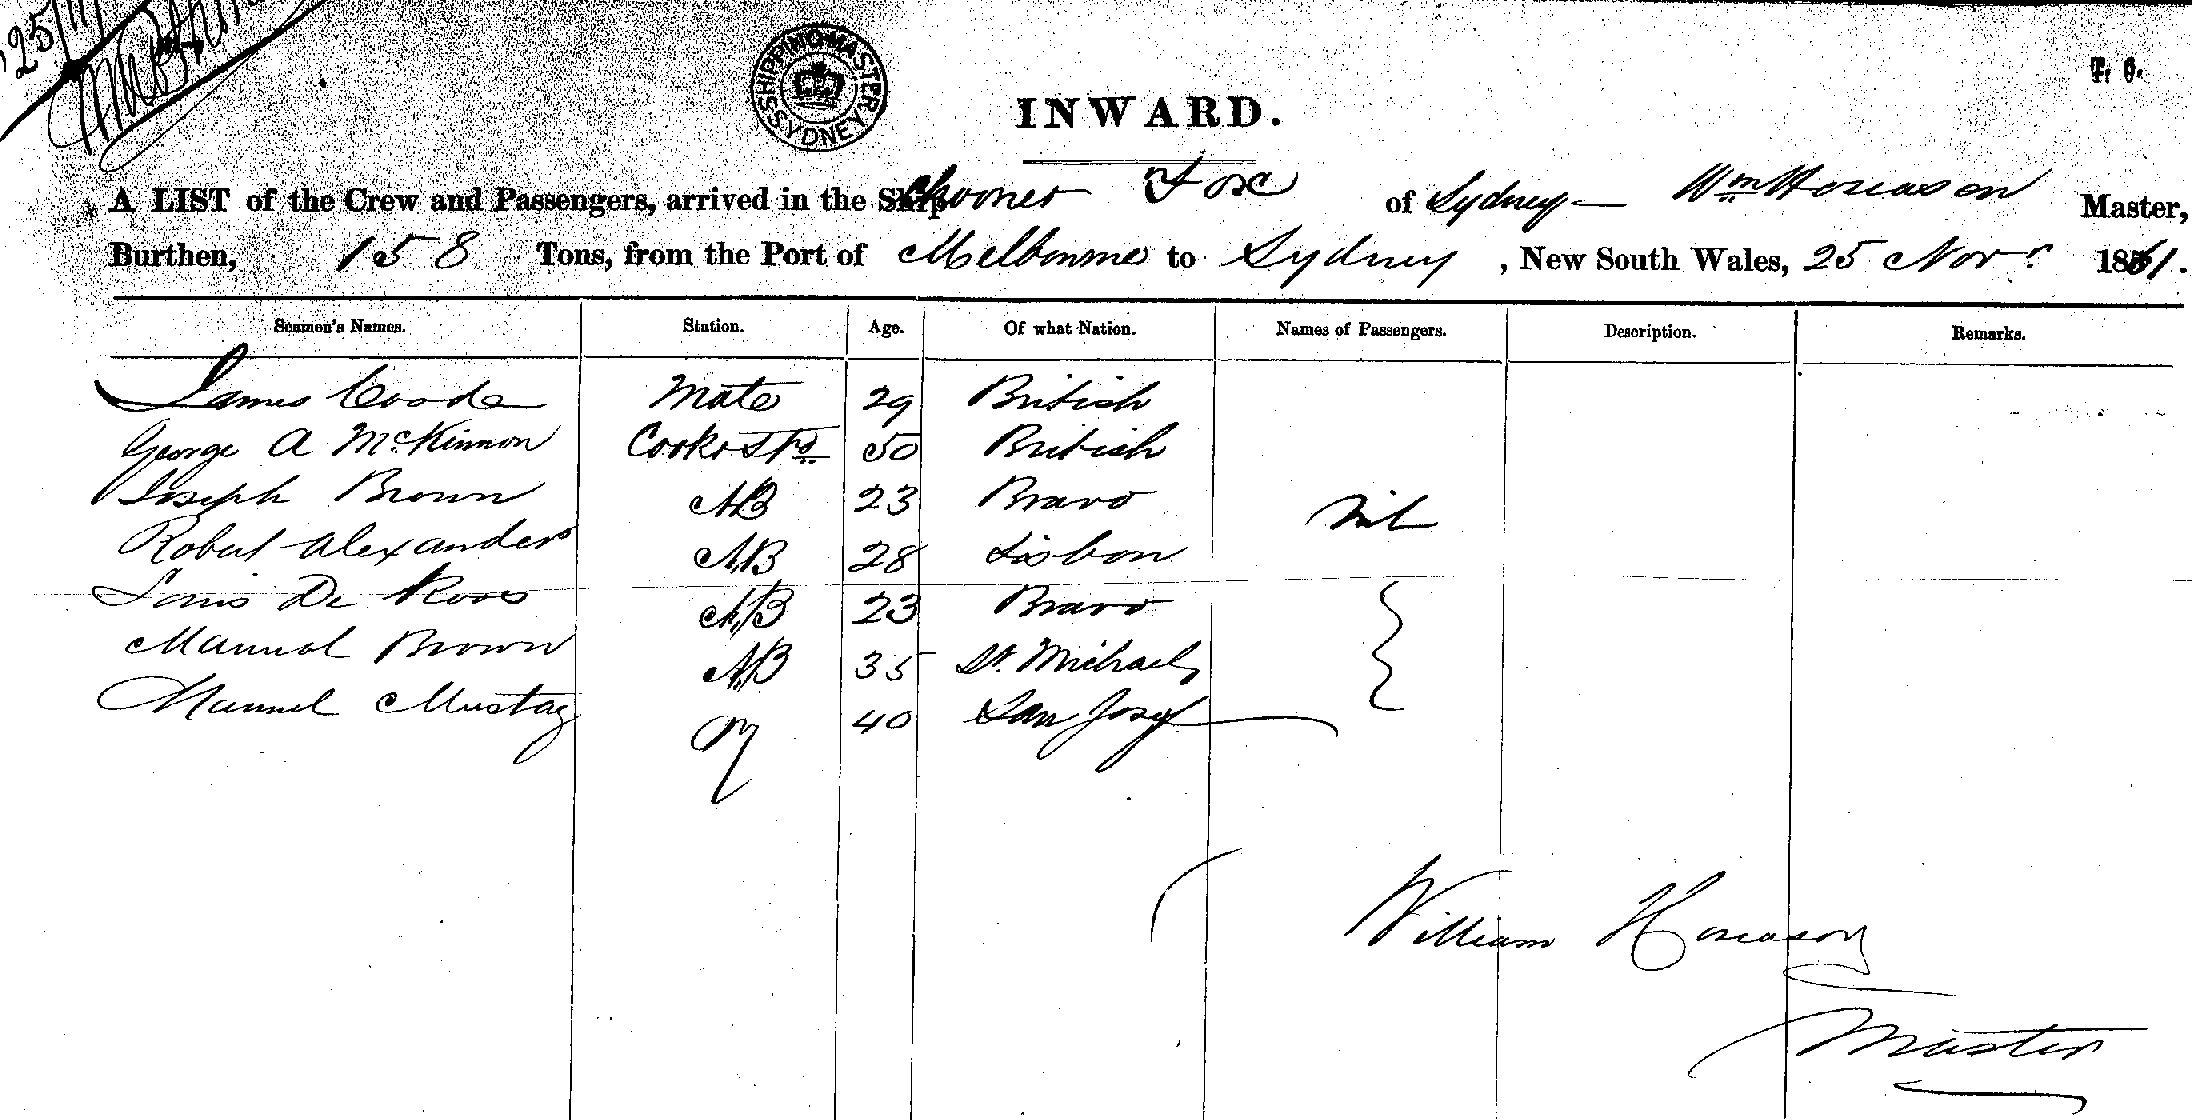 25/11
SHIPPING MASTER SYDNEY
T. G.
INWARD.
A LIST of the Crew and Passengers, arrived in the Ship Schooner Fox of Sydney — Wm Hoseason Master,
Burthen, 158 Tons, from the Port of Melbourne to Sydney , New South Wales, 25 Novr. 1861.
Seamen's Names. Station. Age. Of what Nation. Names of Passengers. Description. Remarks.
James Goode Mate 29 British
George A McKinnon Cook & Std 50 British
Joseph Brown AB 23 Bravo
Nil
Robert Alexander AB 28 Lisbon
Louis De Roos AB 23 Bravo
Manuel Brown AB 35 St. Michaels
Manuel 40 San Josef
William Hoseason
Master